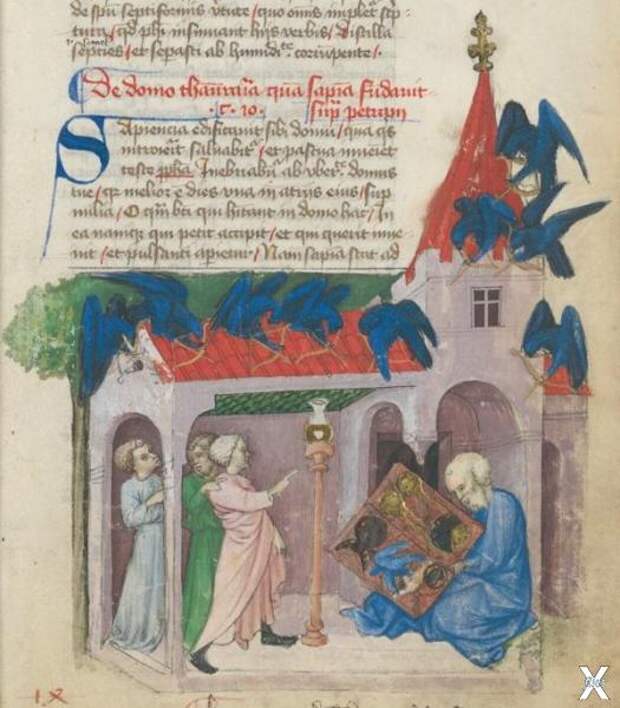 de spū septiformis v̄tute / quo omīs impleť sčp
tura / qđ phī insinuant hijs verbis / Distilla
septies / et sepasti ab humidite corrūpente.
De domo thaurāīa quā sapīa fūdauit
.C. 10. sup̄ petrā
Sapiencia edificauit sibi domū / quā qs
introierit saluabit² / et pascua inueiet
teste ppha / Inebriabū ab vbere domus
tue / qr melior ē dies vna in atrijs eius / sup
milia / O q̄m bti qui hitant in domo hac / In
ea namqȝ qui petit accipit / et qui querit inue
nit / et pulsanti aperietur / Nam sapīa stat ad